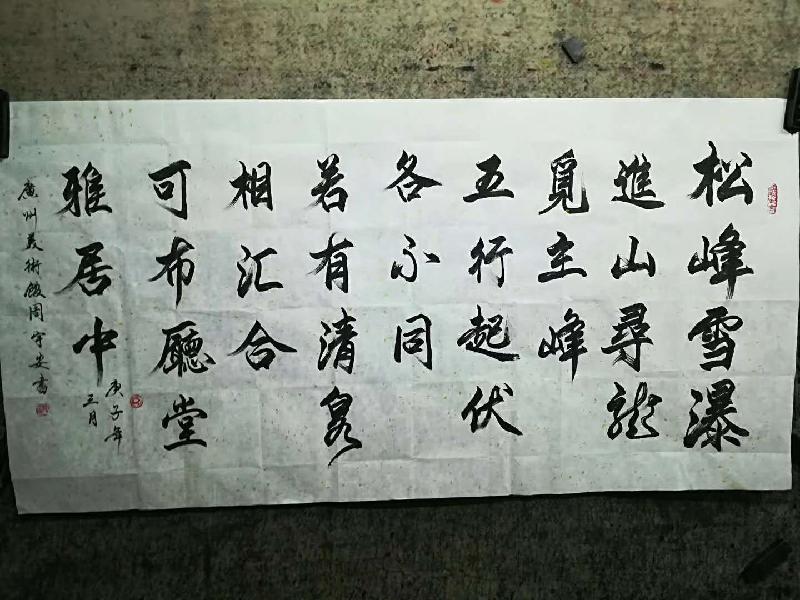 松峰雪瀑
進山尋龍
覓主峰
五行起伏
各不同
若有清泉
相汇合
可布廳堂
雅居中
庚子年
三月
廣州美術館周守安書